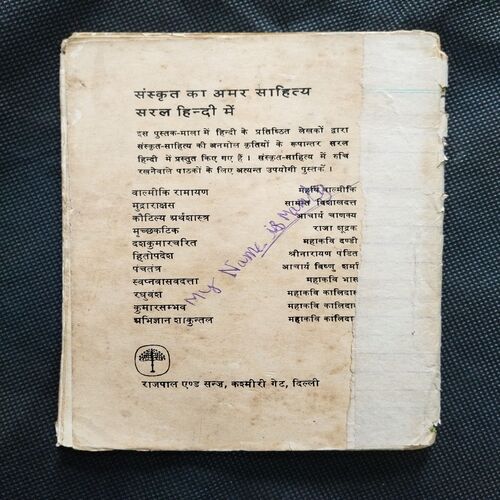 संस्कृत का अमर साहित्य
सरल हिन्दी में
इस पुस्तक-माला में हिन्दी के प्रतिष्ठित लेखकों द्वारा
संस्कृत-साहित्य की अनमोल कृतियों के रूपान्तर सरल
हिन्दी में प्रस्तुत किए गए हैं। संस्कृत-साहित्य में रुचि
रखनेवाले पाठकों के लिए अत्यन्त उपयोगी पुस्तकें।
वाल्मीकि रामायण महर्षि वाल्मीकि
मुद्राराक्षस सामंत विशाखदत्त
कौटिल्य अर्थशास्त्र आचार्य चाणक्य
मृच्छकटिक राजा शूद्रक
दशकुमारचरित महाकवि दण्डी
हितोपदेश श्रीनारायण पंडित
पंचतंत्र आचार्य विष्णु शर्मा
स्वप्नवासवदत्ता महाकवि भास
रघुवंश महाकवि कालिदास
कुमारसम्भव महाकवि कालिदास
अभिज्ञान शाकुन्तल महाकवि कालिदास
My Name is
राजपाल एण्ड सन्ज़, कश्मीरी गेट, दिल्ली